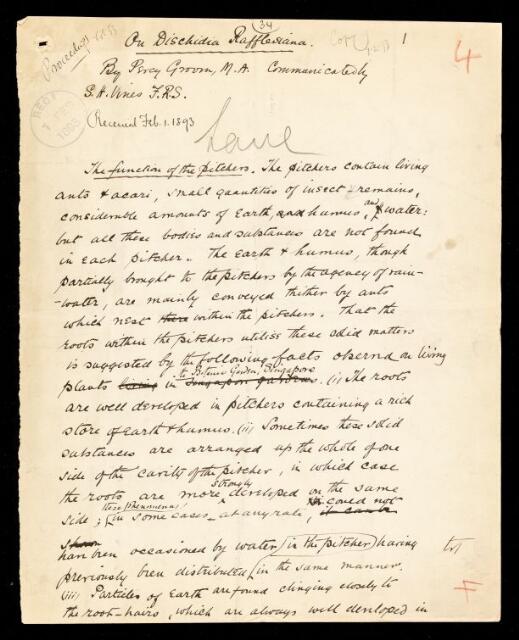 (34)
On Dischidia Rafflesiana.
1
4
Proceedings
By Percy Groom, M.A. Communicated by
S.H. Vines F.R.S.
Received Feb. 1. 1893
The function of the pitchers. The pitchers contain living
ants & acari, small quantities of insect remains,
considerable amounts of Earth, and humus, and water:
but all these bodies and substances are not found
in each pitcher. The Earth & humus, though
partially brought to the pitchers by the agency of rain-
-water, are mainly conveyed thither by ants
which nest there within the pitchers. That the
roots within the pitchers utilise these solid matters
is suggested by the following facts observed on living
plants living in the Botanic Garden, Singapore Singapore gardens. (i) The roots
are well developed in pitchers containing a rich
store of Earth & humus. (ii) Sometimes these solid
substances are arranged up the whole of one
side of the cavity of the pitcher, in which case
the roots are more strongly developed on the same
side; these phenomena in some cases, at any rate, it can be could not
shown
have been occasioned by water in the pitcher having tr/
previously been distributed in the same manner.
(iii) Particles of Earth are found clinging closely to
the root-hairs, which are always well developed in